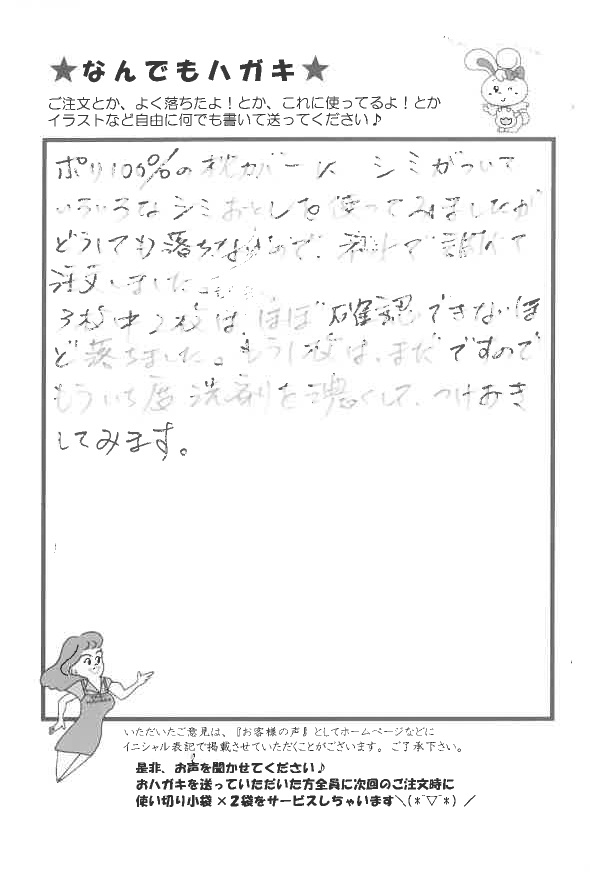 ★なんでもハガキ★
ご注文とか、よく落ちたよ！とか、これに使ってるよ！とか
イラストなど自由に何でも書いて送ってください♪
ポリ100%の枕カバーに シミがついて
いろいろなシミおとしを使ってみましたが
どうしても落ちないので、ネットで調べて
注文しました。
3枚中2枚は、ほぼ確認できないほ
ど落ちました。もう1枚は、まだですので
もういち度洗剤を濃くして、つけおき
してみます。
いただいたご意見は、『お客様の声』としてホームページなどに
イニシャル表記で掲載させていただくことがございます。ご了承下さい。
是非、お声を聞かせてください♪
おハガキを送っていただいた方全員に次回のご注文時に
使い切り小袋×2袋をサービスしちゃいます＼(*ˉ▽ˉ*)／